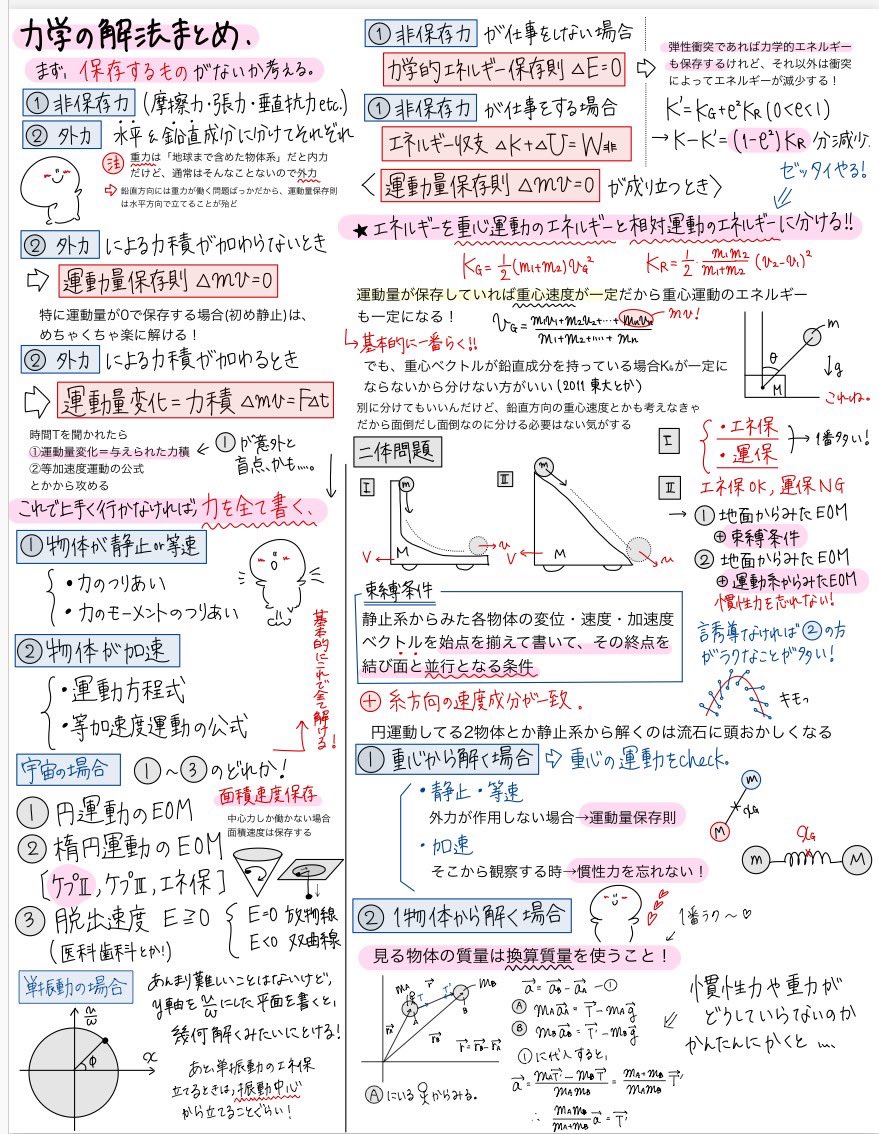 力学の解法まとめ、
まず、保存するものがないか考える。
① 非保存力 (摩擦力・張力・垂直抗力etc.)
② 外力 水平&鉛直成分に分けてそれぞれ
注 重力は「地球まで含めた物体系」だと内力
だけど、通常はそんなことないので外力
⇨ 鉛直方向には重力が働く問題ばっかだから、運動量保存則
は水平方向で立てることが殆ど
② 外力 による力積が加わらないとき
⇨ 運動量保存則 △mv=0
特に運動量が0で保存する場合(初め静止)は、
めちゃくちゃ楽に解ける!
② 外力 による力積が加わるとき
⇨ 運動量変化=力積 △mv=F△t
時間Tを聞かれたら
①運動量変化=与えられた力積
②等加速度運動の公式
とかから攻める
← ①が意外と
盲点、かも....。
これで上手く行かなければ、力を全て書く、
① 物体が静止or等速
・力のつりあい
・力のモーメントのつりあい
② 物体が加速
・運動方程式
・等加速度運動の公式
基本的にこれで全て解ける!
宇宙の場合 ①~③のどれか!
① 円運動のEOM
面積速度保存
中心力しか働かない場合
面積速度は保存する
② 楕円運動のEOM
[ケプⅡ,ケプⅢ,エネ保]
③ 脱出速度 E≧0
(医科歯科とか!)
E=0 放物線
E<0 双曲線
単振動の場合
v/ω
x
φ
あんまり難しいことはないけど、
y軸をv/ωにした平面を書くと、
幾何解くみたいにとける!
あと、単振動のエネ保
立てるときは、振動中心
から立てることぐらい!
① 非保存力 が仕事をしない場合
力学的エネルギー保存則 △E=0
⇨ 弾性衝突であれば力学的エネルギー
も保存するけれど、それ以外は衝突
によってエネルギーが減少する!
① 非保存力 が仕事をする場合
エネルギー収支 △K+△U=W非
K'=KG+e²KR(0<e<1)
→ K-K'=(1-e²)KR分減少.
〈 運動量保存則 △mv=0 が成り立つとき〉
ゼッタイやる!
★エネルギーを重心運動のエネルギーと相対運動のエネルギーに分ける!!
KG=1/2(m1+m2)vG² KR=1/2・m1m2/(m1+m2)(v2-v1)²
運動量が保存していれば重心速度が一定だから重心運動のエネルギー
も一定になる!
vG=(m1v1+m2v2+…+mnvn)/(m1+m2+…+mn)
mv!
↳基本的に一番らく!!
でも、重心ベクトルが鉛直成分を持っている場合KGが一定に
ならないから分けない方がいい(2011 東大とか)
別に分けてもいいんだけど、鉛直方向の重心速度とかも考えなきゃ
だから面倒だし面倒なのに分ける必要はない気がする
m
θ
g
M
これね。
二体問題
Ⅰ
m
M
V
u
Ⅱ
m
M
V
u
Ⅰ
・エネ保
・運保
→1番多い!
Ⅱ エネ保OK, 運保NG
→ ① 地面からみたEOM
⊕束縛条件
② 地面からみたEOM
⊕運動系からみたEOM
慣性力を忘れない!
誘導なければ②の方
がラクなことが多い!
キモっ
束縛条件
静止系からみた各物体の変位・速度・加速度
ベクトルを始点を揃えて書いて、その終点を
結び面と並行となる条件
⊕ 糸方向の速度成分が一致.
円運動してる2物体とか静止系から解くのは流石に頭おかしくなる
① 重心から解く場合 ⇨ 重心の運動をcheck.
・静止・等速
外力が作用しない場合→運動量保存則
・加速
そこから観察する時→慣性力を忘れない!
m
xG
M
xG
m
M
② 1物体から解く場合
1番ラク~♡
見る物体の質量は換算質量を使うこと!
mA
r
mB
T
T'
A
B
rA
rB
r=rB-rA
Ⓐにいる から みる.
a=aB-aA -①
Ⓐ mAaA=T-mAg
Ⓑ mBaB=T'-mBg
①に代入すると,
a=(mAT'-mBT)/mAmB=(mA+mB)/mAmB T'
∴ mAmB/(mA+mB) a=T'
慣性力や重力が
どうしていらないのか
かんたんにかくと ....